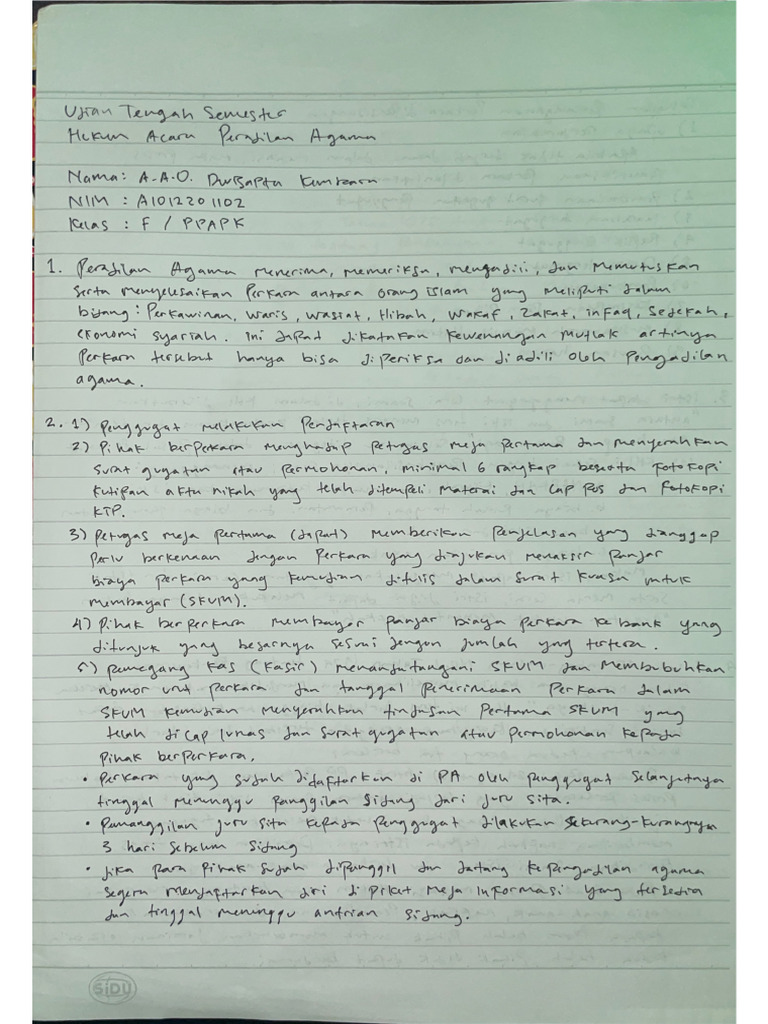 Ujian Tengah Semester
Hukum Acara Peradilan Agama
Nama : A.A.O. Dwisapta
NIM : A1012201102
Kelas : F / PPAPK
1. Peradilan Agama menerima, memeriksa, mengadili, dan memutuskan
serta menyelesaikan perkara antara orang islam yang meliputi dalam
bidang : Perkawinan, waris, wasiat, Hibah, wakaf, zakat, infaq, sedekah,
ekonomi syariah. Ini dapat dikatakan kewenangan mutlak artinya
perkara tersebut hanya bisa diperiksa dan diadili oleh Pengadilan
agama.
2. 1) Penggugat melakukan Pendaftaran
2) Pihak berperkara menghadap petugas meja pertama dan menyerahkan
surat gugatan atau permohonan, minimal 6 rangkap beserta fotokopi
kutipan akta nikah yang telah ditempeli materai dan cap pos dan fotokopi
KTP.
3) Petugas meja pertama (dapat) memberikan penjelasan yang dianggap
perlu berkenaan dengan perkara yang diajukan menaksir panjar
biaya perkara yang kemudian ditulis dalam surat kuasa untuk
membayar (SKUM).
4) Pihak berperkara membayar panjar biaya perkara ke bank yang
ditunjuk yang besarnya sesuai dengan jumlah yang tertera.
5) pemegang kas (kasir) menandatangani SKUM dan membubuhkan
nomor urut perkara dan tanggal penerimaan perkara dalam
SKUM kemudian menyerahkan tindasan pertama SKUM yang
telah di cap lunas dan surat gugatan atau permohonan kepada
pihak berperkara.
• Perkara yang sudah didaftarkan di PA oleh penggugat selanjutnya
tinggal menunggu panggilan sidang dari juru sita.
• Pemanggilan juru sita kepada penggugat dilakukan sekurang-kurangnya
3 hari sebelum sidang
• Jika para pihak sudah dipanggil dan datang ke pengadilan agama
segera mendaftarkan diri di piket meja informasi yang tersedia
dan tinggal menunggu antrian sidang.
SIDU